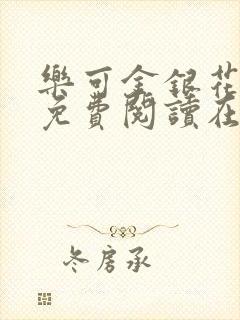 樂可金銀花
免費閱讀在
冬房承